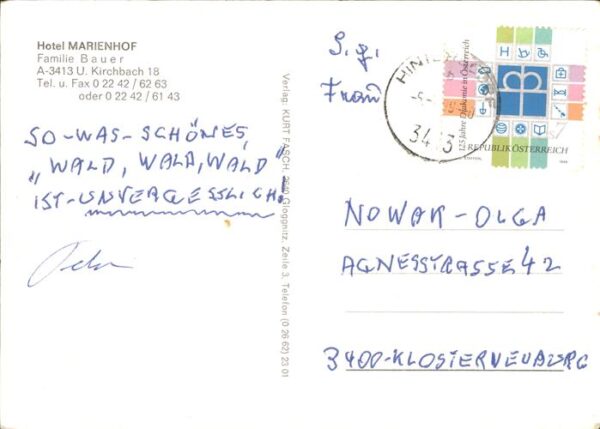 Hotel MARIENHOF
Familie Bauer
A-3413 U. Kirchbach 18
Tel. u. Fax 0 22 42 / 62 63
oder 0 22 42 / 61 43
SO-WAS-SCHÖNES,
"WALD, WALD, WALD"
IST-UNVERGESSLICH!
Verlag: KURT FASCH, 2640 Gloggnitz, Zeile 3, Telefon (0 26 62) 23 01
S. g.
Frau
3413
125 Jahre Diakonie in Österreich
REPUBLIK ÖSTERREICH
NOWAK-OLGA
AGNESSTRASSE 42
3400-KLOSTERNEUBURG